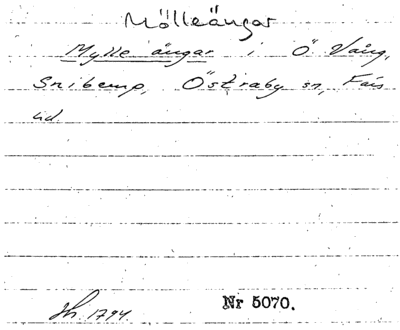 Mölleängar
Mylle ängar i Ö. Vång,
Snibemp, Östraby sn, Färs
hd.
Sk. 1794. Nr 5070.